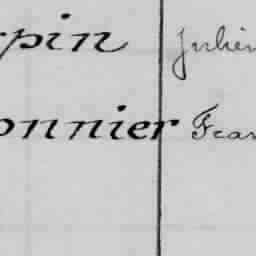 rpin Julien
onnier Fran